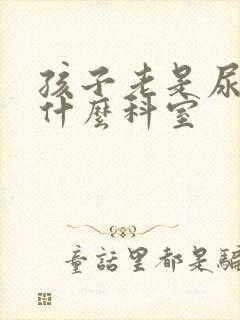 孩子老是尿
什麼科室
童話里都是騙